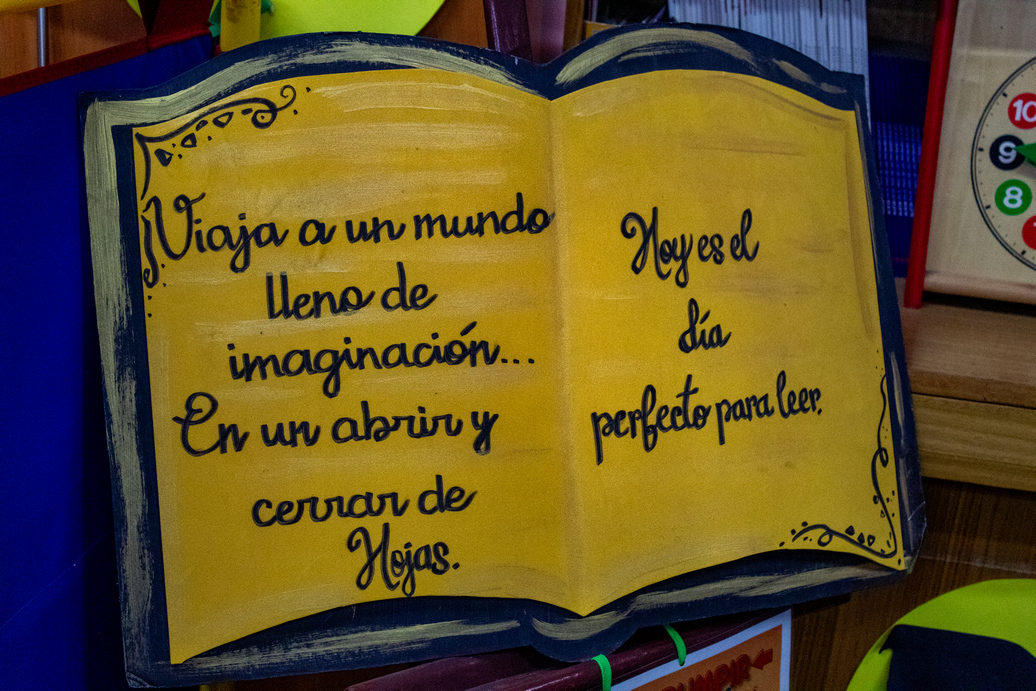 Viaja a un mundo
lleno de
imaginación...
En un abrir y
cerrar de
Hojas.
Hoy es el
día
perfecto para leer.
10
9
8